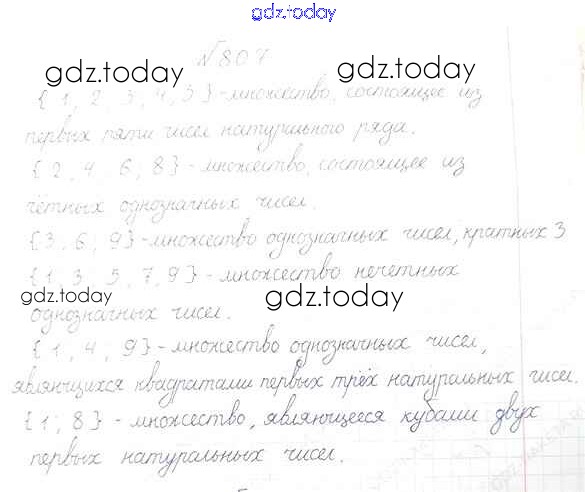 gdz.today
№807
gdz.today gdz.today
{1, 2, 3, 4, 5} - множество, состоящее из
первых пяти чисел натурального ряда.
{2, 4, 6, 8} - множество, состоящее из
чётных однозначных чисел.
{3; 6; 9} - множество однозначных чисел, кратных 3
{1, 3, 5, 7, 9} - множество нечетных
gdz.today gdz.today
однозначных чисел.
{1, 4, 9} - множество однозначных чисел,
являющихся квадратами первых трёх натуральных чисел.
{1; 8} - множество, являющееся кубами двух
первых натуральных чисел.